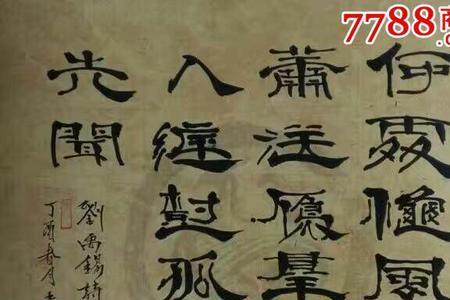 7788商
何處龝風
蕭送鴈羣
入庭樹孤
先聞
劉禹錫詩
丁酉春月